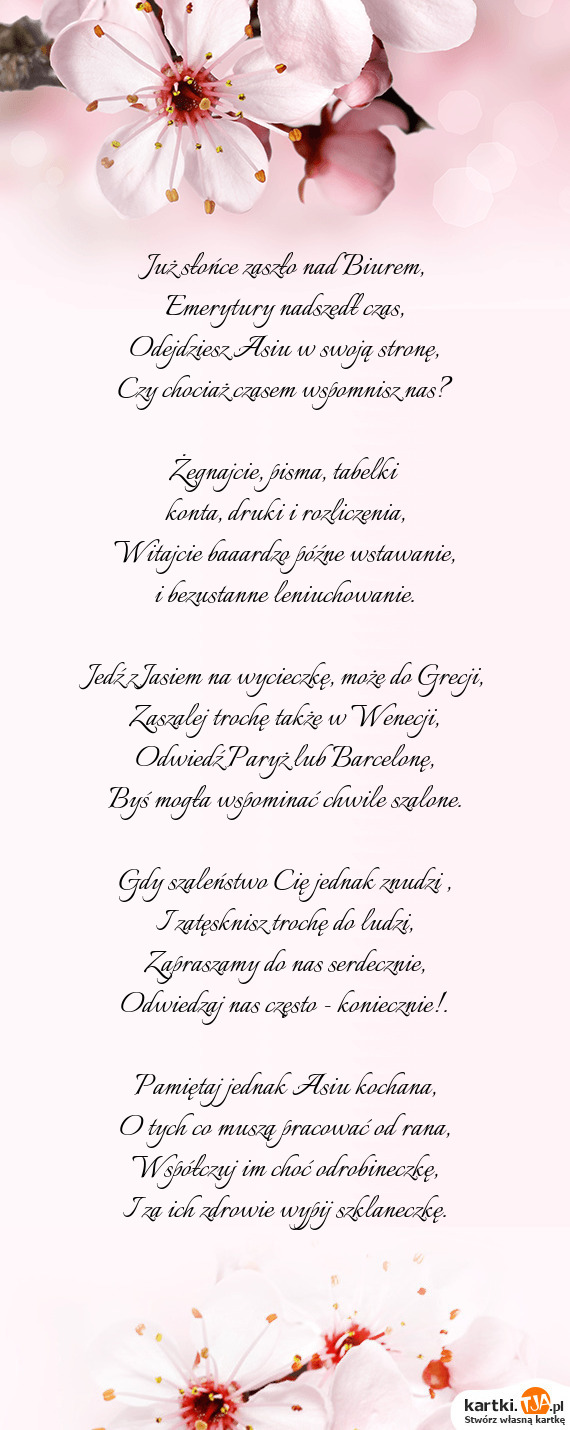 Już słońce zaszło nad Biurem,
Emerytury nadszedł czas,
Odejdziesz Asiu w swoją stronę,
Czy chociaż czasem wspomnisz nas?
Żegnajcie, pisma, tabelki
konta, druki i rozliczenia,
Witajcie baaardzo późne wstawanie,
i bezustanne leniuchowanie.
Jedź z Jasiem na wycieczkę, może do Grecji,
Zaszalej trochę także w Wenecji,
Odwiedź Paryż lub Barcelonę,
Byś mogła wspominać chwile szalone.
Gdy szaleństwo Cię jednak znudzi ,
I zatęsknisz trochę do ludzi,
Zapraszamy do nas serdecznie,
Odwiedzaj nas często - koniecznie!.
Pamiętaj jednak Asiu kochana,
O tych co muszą pracować od rana,
Współczuj im choć odrobineczkę,
I za ich zdrowie wypij szklaneczkę.
kartki.TJA.pl
Stwórz własną kartkę